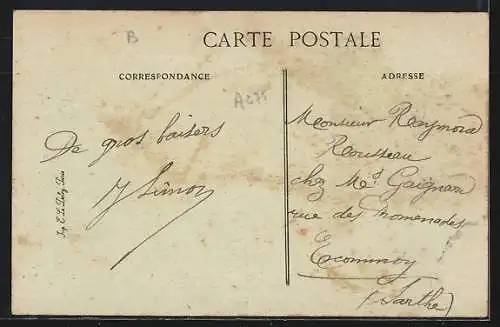 B
CARTE POSTALE
CORRESPONDANCE
ADRESSE
A275
De gros baisers
Y Simon
Monsieur Raymond
Rousseau
chez Md Gaignard
rue des Promenades
Ecommoy
(Sarthe)
Imp. E. Le Deley, Paris